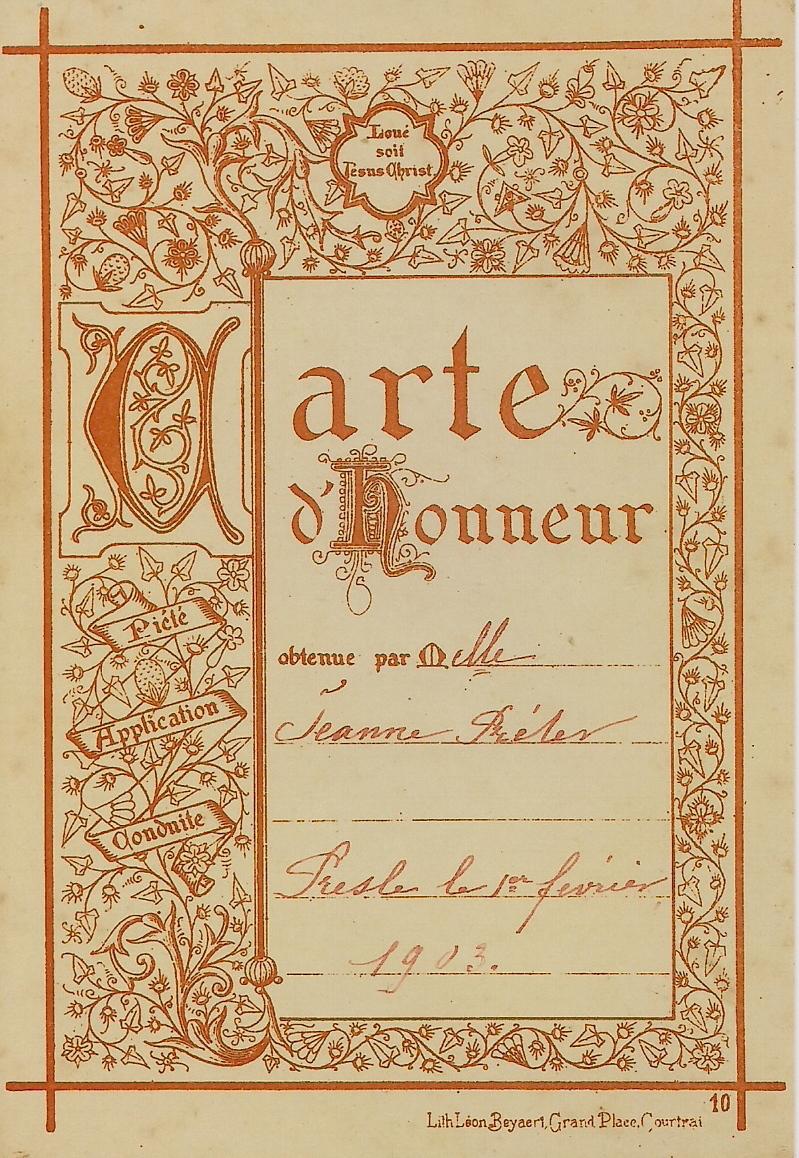 Loué
soit
Jésus Christ
Carte
d'Honneur
Piété
Application
Conduite
obtenue par Melle
Jeanne
Presle le 1er février
1903.
10
Lith Léon Beyaert, Grand Place, Courtrai